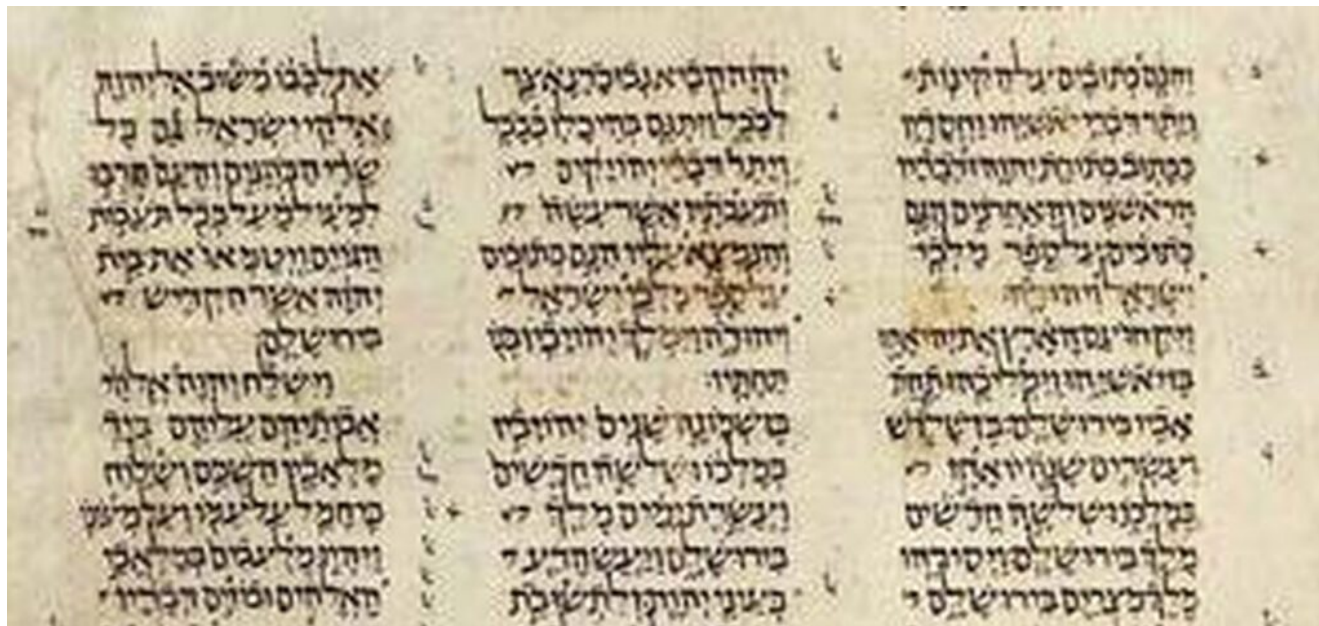 והנם כתובים על הקינות
ויתר דברי יאשיהו וחסדיו
ככתוב בתורת יהוה ודבריו
הראשנים והאחרנים הנם
כתובים על ספר מלכי
ישראל ויהודה
ויקחו עם הארץ את יהואחז
בן יאשיהו וימליכהו תחת
אביו בירושלם בן שלוש
ועשרים שנה יואחז
במלכו ושלשה חדשים
מלך בירושלם ויסירהו
מלך מצרים בירושלם
יהוה הביא נבוכדנאצר
לבבל ויתנם בהיכלו בבבל
ויתר דברי יהויקים
ותעבתיו אשר עשה
והנמצא עליו הנם כתובים
על ספר מלכי ישראל
ויהודה וימלך יהויכין בנו
תחתיו
בן שמונה שנים יהויכין
במלכו ושלשה חדשים
ועשרת ימים מלך
בירושלם ויעש הרע
בעיני יהוה ולתשובת
את לבבו משוב אל יהוה
אלהי ישראל גם כל
שרי הכהנים והעם הרבו
למעול מעל ככל תעבות
הגוים ויטמאו את בית
יהוה אשר הקדיש
בירושלם
וישלח יהוה אלהי
אבתיהם עליהם ביד
מלאכיו השכם ושלוח
כי חמל על עמו ועל מעונו
ויהיו מלעבים במלאכי
האלהים ובוזים דבריו